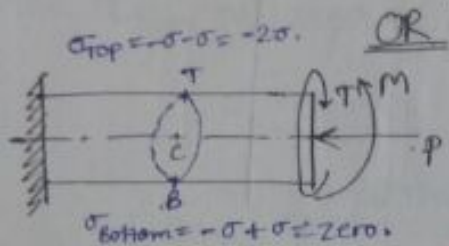 σTop = -σ-σ = -2σ.
OR
T
T M
C
P
B
σBottom = -σ+σ = zero.